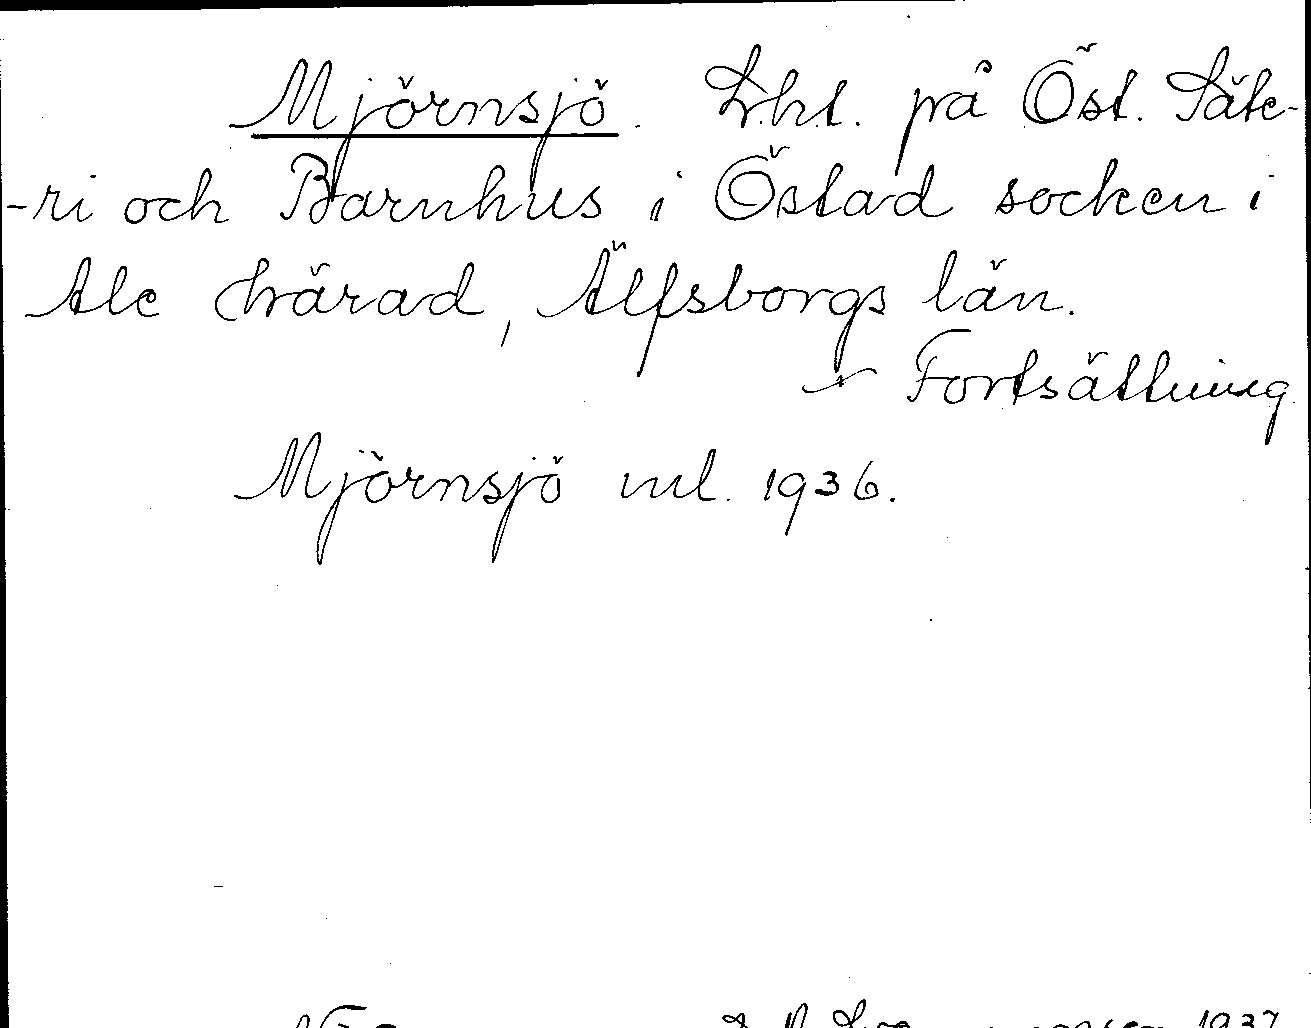 Mjörnsjö. Lht. på Öst. Säte-
-ri och Barnhus i Östad socken i
Ale härad, Älfsborgs län.
Fortsättning
Mjörnsjö uml. 1936.
1937